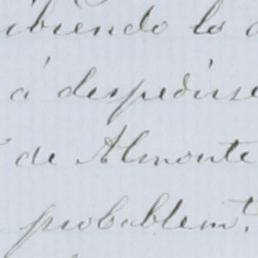 ibiendo lo
á despedirse
de Almonte
probablemt.